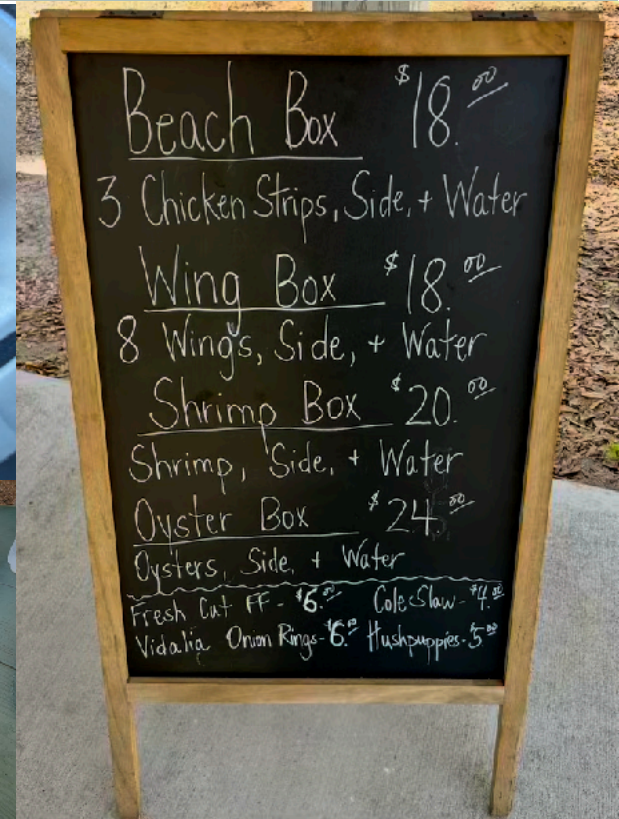 Beach Box $18.00
3 Chicken Strips, Side, + Water
Wing Box $18.00
8 Wings, Side, + Water
Shrimp Box $20.00
Shrimp, Side, + Water
Oyster Box $24.00
Oysters, Side, + Water
Fresh Cut FF - $6.00 Cole Slaw - $4.00
Vidalia Onion Rings - $6.00 Hushpuppies - $5.00